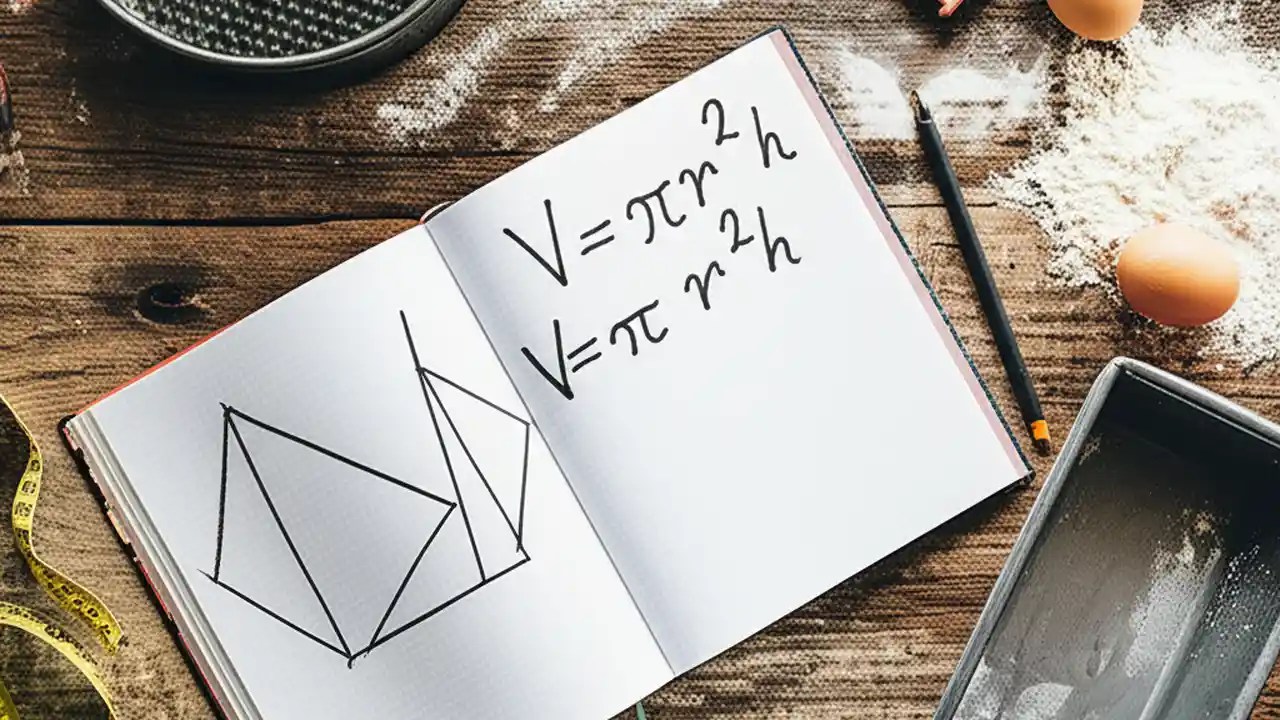 V = πr²h
V = π r²h